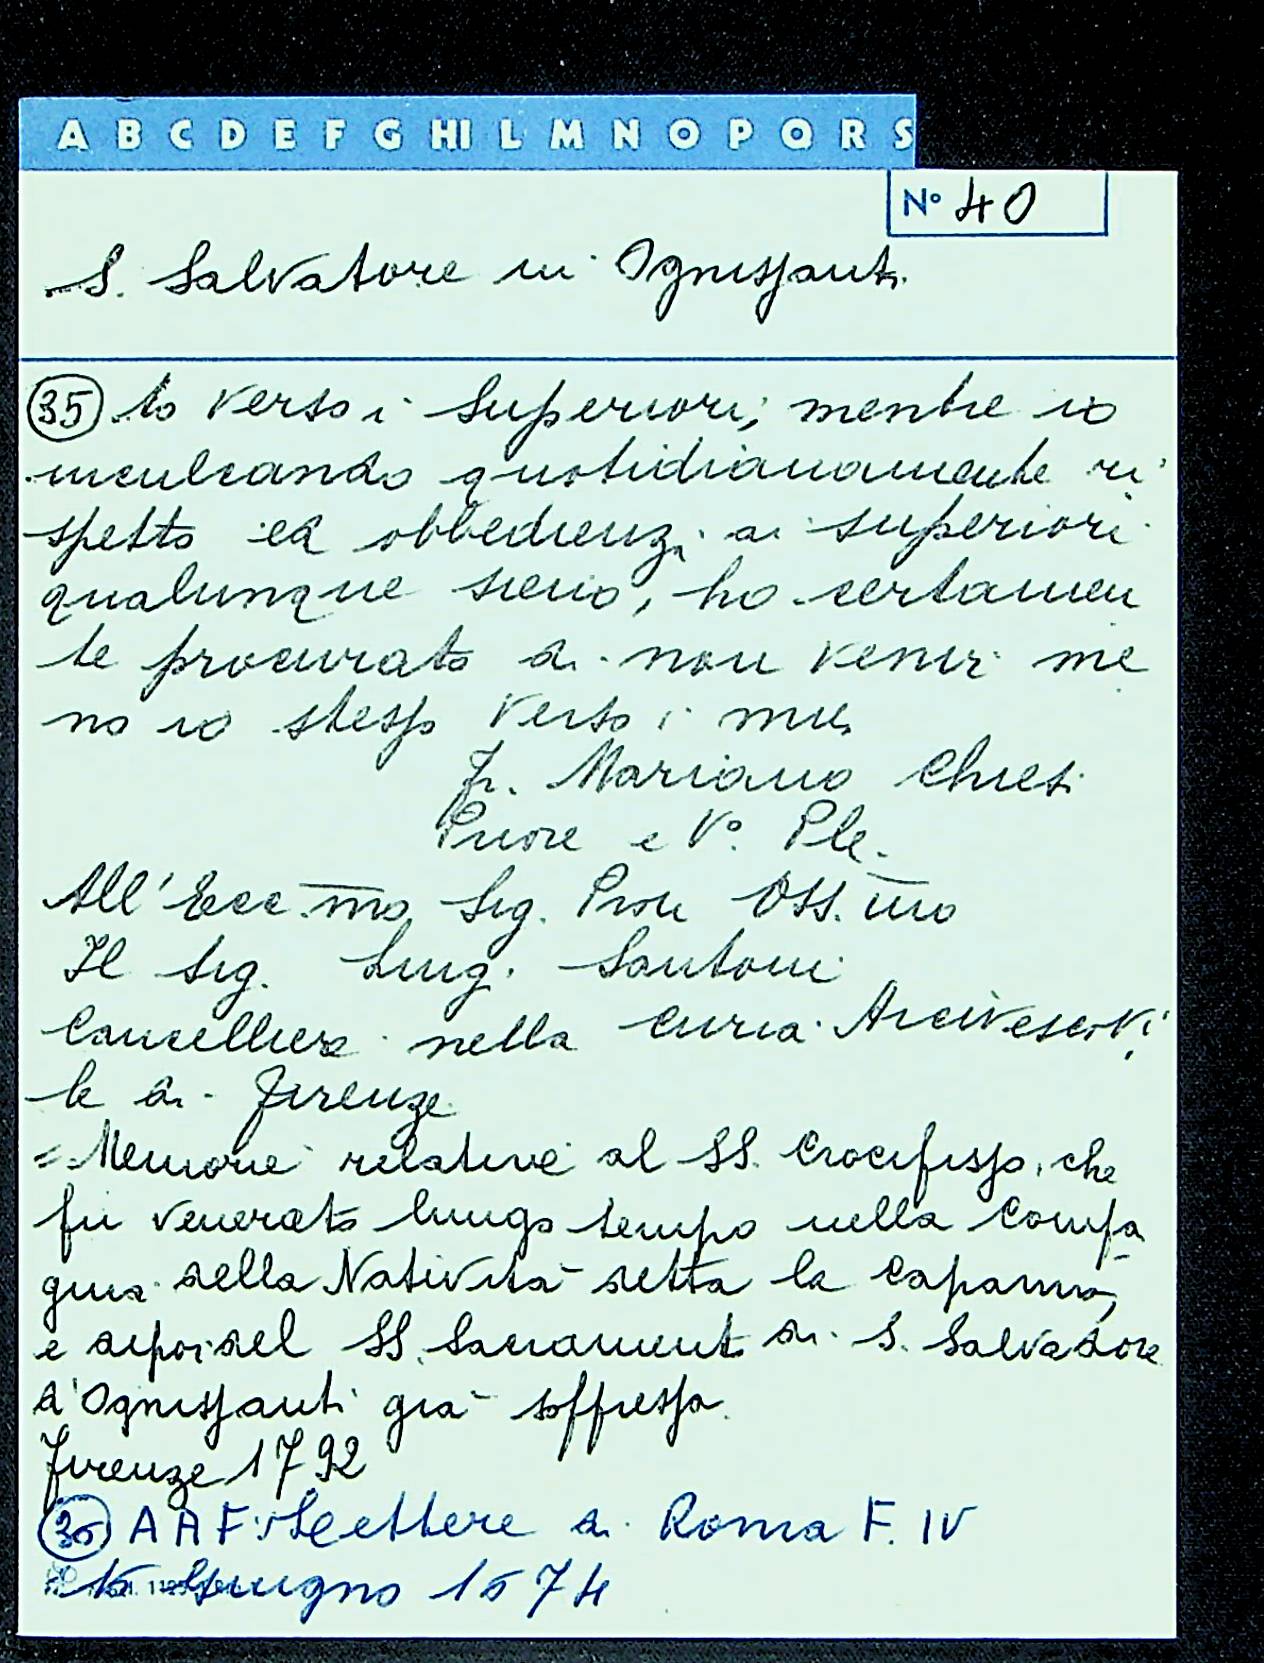 A B C D E F G HI L M N O P Q R S
N° 40
S. Salvatore in Ognissanti
35 to verso i Superiori, mentre io
inculcando quotidianamente ri
spetto ed obbedienza ai superiori
qualunque sieno, ho certamen
te procurato di non venir me
no io stesso verso i miei
fr. Mariano Chiesi
Priore e V°. Ple.
All'Ecc.mo Sig. Pron Oss.mo
Il Sig. Luig. Santoni
Cancelliere nella Curia Arcivescovi
le di Firenze
= Memorie relative al SS. Crocifisso, che
fu venerato lungo tempo nella Compa
gnia della Natività detta la Capanna,
e dipoi del SS. Sacramento di S. Salvadore
d'Ognissanti già soffressa.
Firenze 1792
36 A A F: Lettere di Roma F. IV
Giugno 1574